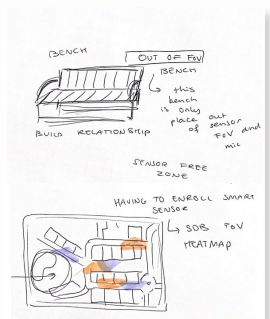 BENCH
OUT OF FOV
BENCH
this
bench
is only
place out
of sensor
FoV and
mic
BUILD RELATIONSHIP
SENSOR FREE
ZONE
HAVING TO ENROLL SMART
SENSOR
SDB FOV
HEATMAP